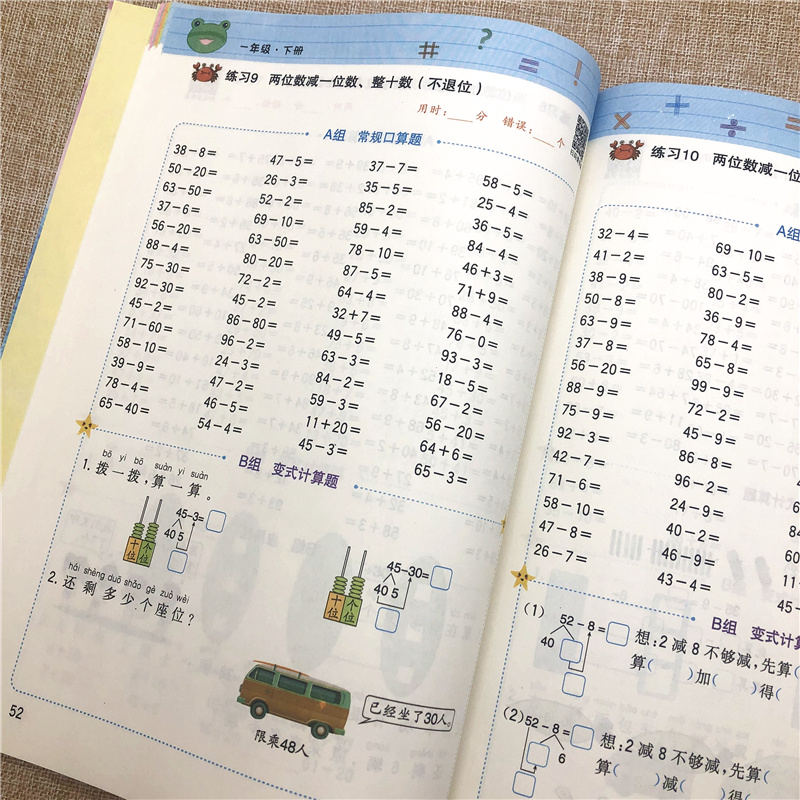 一年级·下册
练习9 两位数减一位数、整十数（不退位）
用时:____分 错误:____个
A组 常规口算题
38-8= 47-5= 37-7= 58-5=
50-20= 26-3= 35-5= 25-4=
63-50= 52-2= 85-2= 36-5=
37-6= 69-10= 59-4= 84-4=
56-20= 63-50= 78-10= 46+3=
88-4= 80-20= 87-5= 71+9=
75-30= 72-2= 64-4= 88-4=
92-30= 45-2= 32+7= 76-0=
45-2= 86-80= 49-5= 93-3=
71-60= 96-2= 63-3= 18-5=
58-10= 24-3= 84-2= 67-2=
39-9= 47-2= 59-3= 56-20=
78-4= 46-5= 11+20= 64+6=
65-40= 54-4= 45-3= 65-3=
B组 变式计算题
bō yi bō suàn yi suàn
1. 拨一拨,算一算。
45-3=
40 5
十位 个位
45-30=
40 5
十位 个位
hái shèng duō shǎo gè zuò wèi
2. 还剩多少个座位?
已经坐了30人。
限乘48人
52
练习10 两位数减一位
A组
32-4= 69-10=
41-2= 63-5=
38-9= 80-2=
50-8= 36-9=
63-9= 78-4=
37-8= 65-8=
56-20= 99-9=
88-9= 72-2=
75-9= 45-9=
92-3= 86-8=
42-7= 96-2=
71-6= 24-9=
58-10= 40-2=
47-8= 46-9=
26-7= 43-4=
B组 变式计算
(1) 52-8=
40
想:2减8不够减,先算(
算( )加( )得(
(2) 52-8=
6
想:2减8不够减,先算(
算( )减( )得(